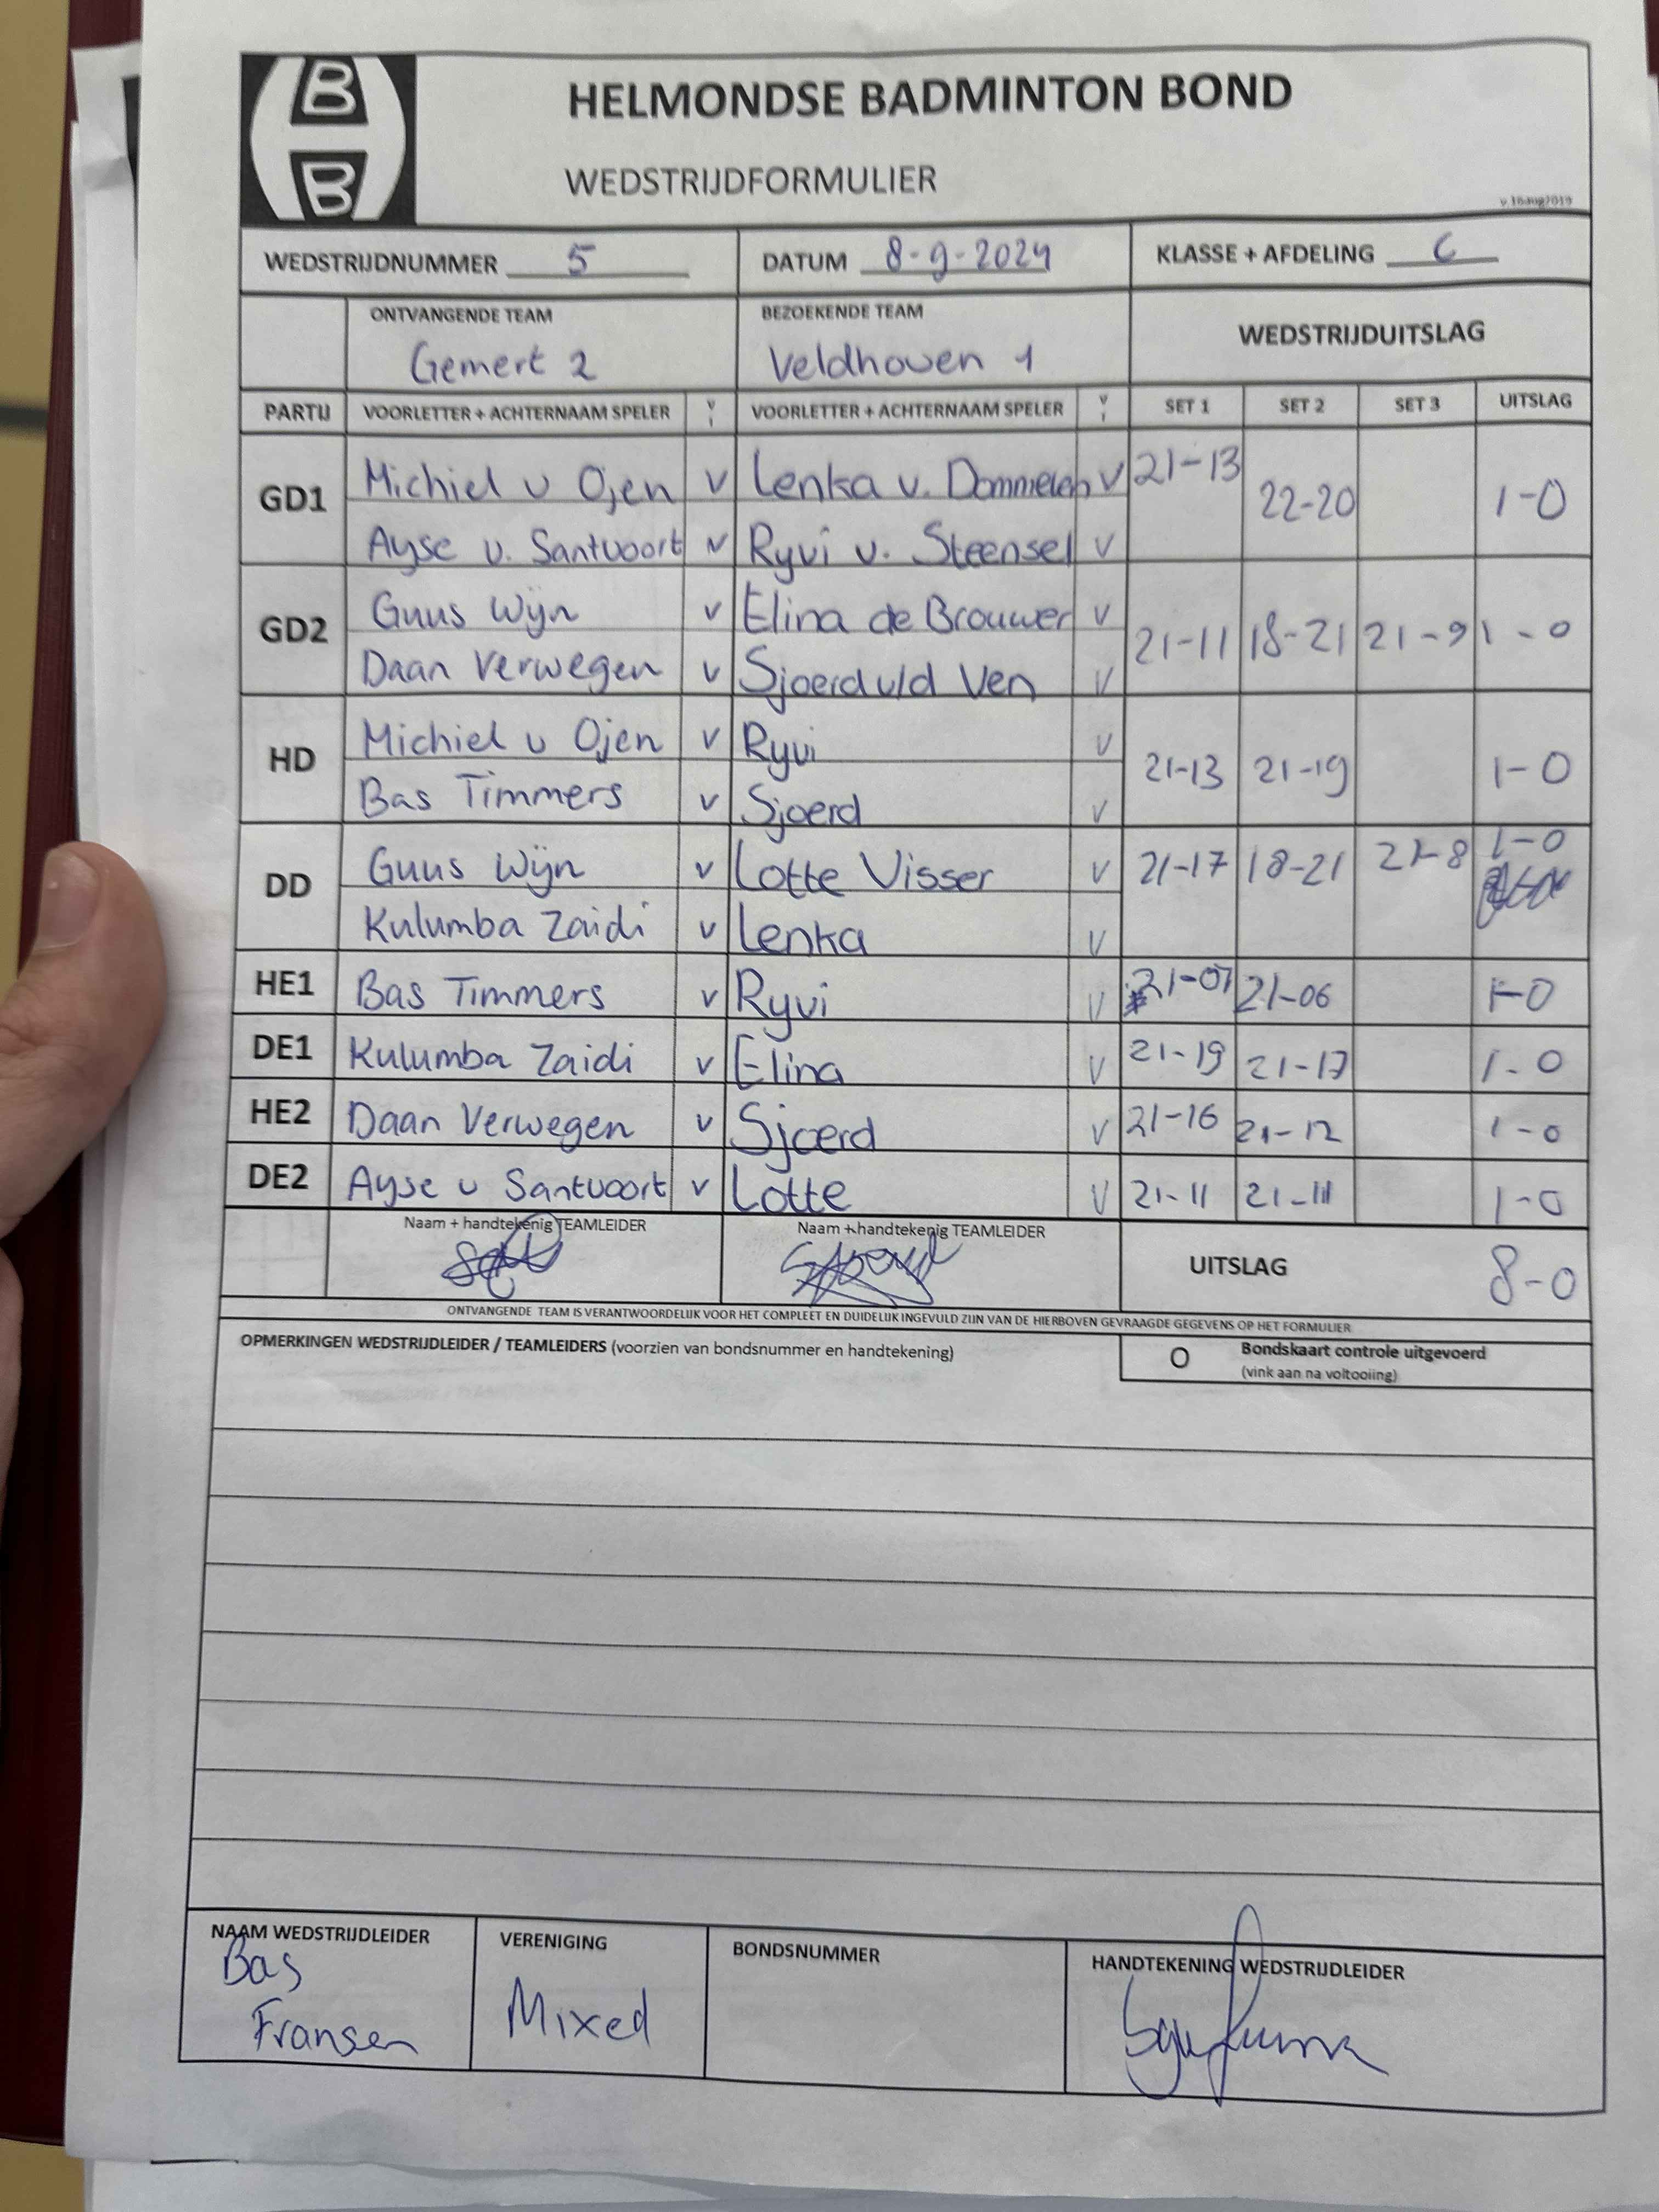 B
B
HELMONDSE BADMINTON BOND
WEDSTRIJDFORMULIER
v.16aug2019
WEDSTRIJDNUMMER 5 DATUM 8-9-2024 KLASSE + AFDELING C
ONTVANGENDE TEAM BEZOEKENDE TEAM WEDSTRIJDUITSLAG
Gemert 2 Veldhoven 1
PARTIJ VOORLETTER + ACHTERNAAM SPELER V VOORLETTER + ACHTERNAAM SPELER V SET 1 SET 2 SET 3 UITSLAG
GD1 Michiel v Ojen v Lenka v. Dommelen v 21-13 22-20 1-0
Ayse v. Santvoort v Ryvi v. Steensel v
GD2 Guus Wijn v Elina de Brouwer v 21-11 18-21 21-9 1-0
Daan Verwegen v Sjoerd v/d Ven v
HD Michiel v Ojen v Ryvi v 21-13 21-19 1-0
Bas Timmers v Sjoerd v
DD Guus Wijn v Lotte Visser v 21-17 18-21 21-8 1-0
Kulumba Zaidi v Lenka v
HE1 Bas Timmers v Ryvi v 21-07 21-06 1-0
DE1 Kulumba Zaidi v Elina v 21-19 21-17 1-0
HE2 Daan Verwegen v Sjoerd v 21-16 21-12 1-0
DE2 Ayse v Santvoort v Lotte v 21-11 21-11 1-0
Naam + handtekenig TEAMLEIDER Naam +handtekenig TEAMLEIDER UITSLAG 8-0
ONTVANGENDE TEAM IS VERANTWOORDELIJK VOOR HET COMPLEET EN DUIDELIJK INGEVULD ZIJN VAN DE HIERBOVEN GEVRAAGDE GEGEVENS OP HET FORMULIER
OPMERKINGEN WEDSTRIJDLEIDER / TEAMLEIDERS (voorzien van bondsnummer en handtekening) O Bondskaart controle uitgevoerd
(vink aan na voltooiing)
NAAM WEDSTRIJDLEIDER VERENIGING BONDSNUMMER HANDTEKENING WEDSTRIJDLEIDER
Bas
Fransen Mixed